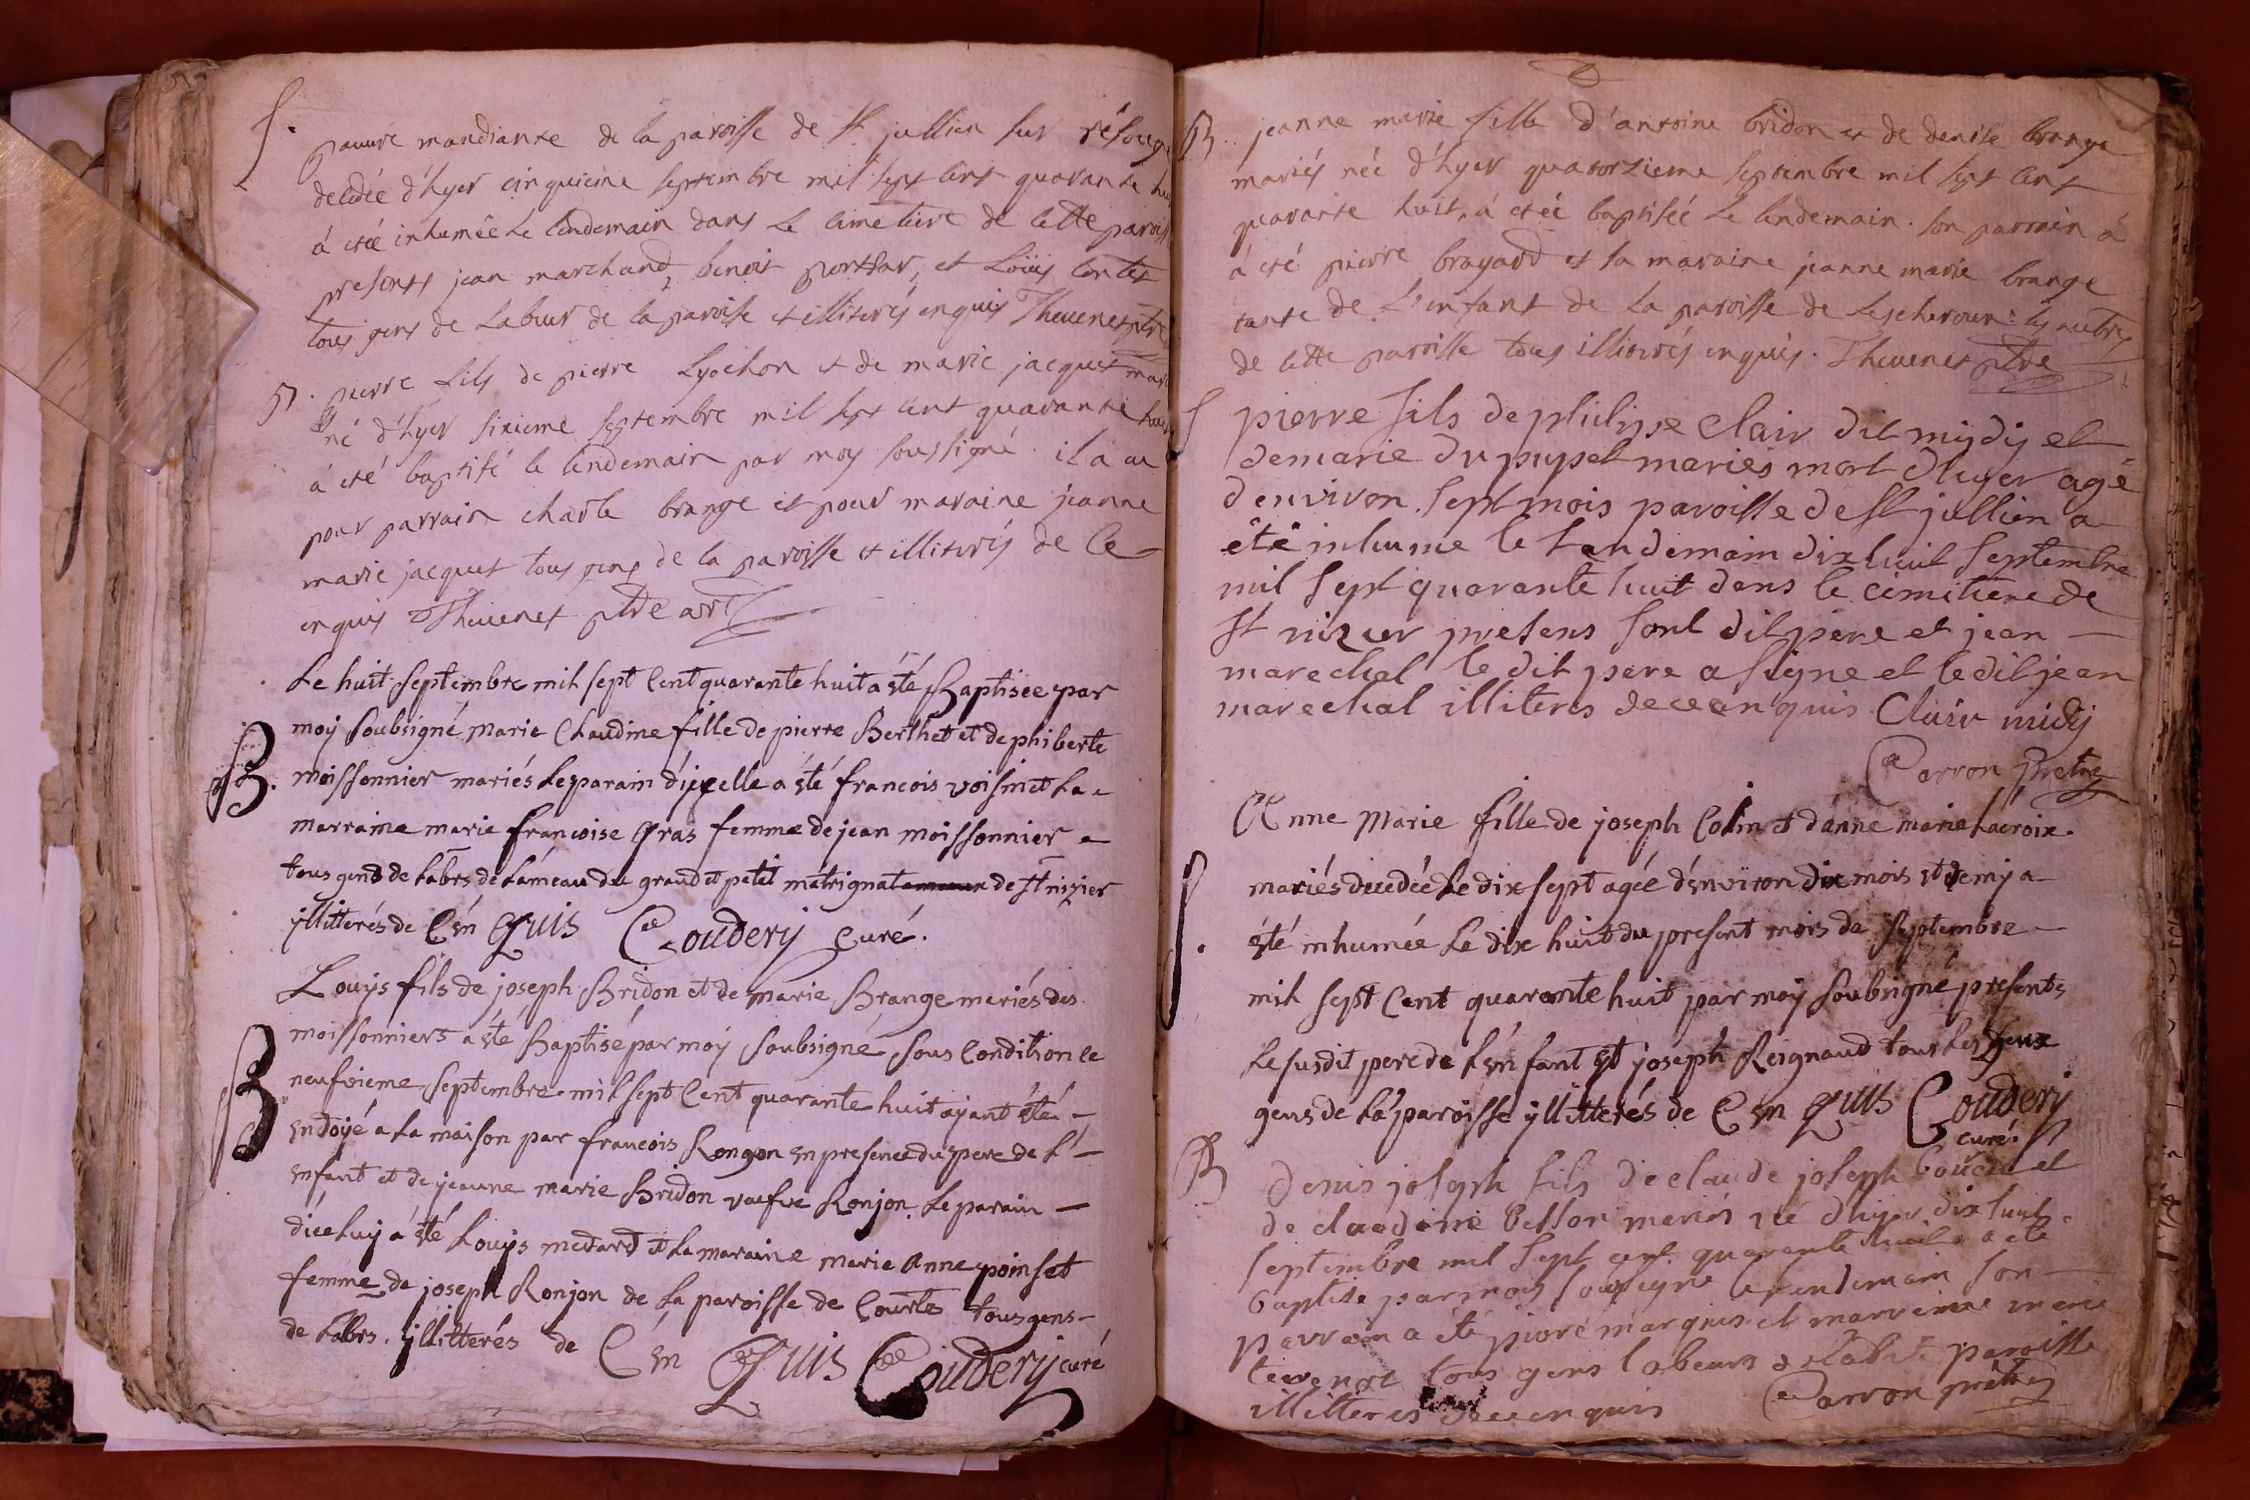 S.
pauvre mandiante de la paroisse de st jullien sur résouge
decedée d'hyer cinquieme septembre mil sept cent quarante huit
á eteé inhumêe Le lendemain dans Le cimetiere de cette paroisse
presents jean marchand, benoit porthar, et Loüis Contet
tous gens de Labeur de la paroisse et illiterés enquis Thevenet ptre
B. pierre fils de pierre Lyochon et de marie jacquet mariés
né d'hyer sixieme septembre mil sept cent quarante huit
á eté baptisé le lendemain par moy soussigné il a eu
pour parrain charle brange et pour maraine jeanne
marie jacquet tous gens de la paroisse et illiterés de ce
enquis Thevenet ptre
Le huit septembre mil sept Cent quarante huit á été Baptisée par
moy soubsigné, Marie Claudine fille de pierre Berthet et de phiberte
B.
moissonnier mariés Le parain d'ycelle á été francois voisin et La
marraine marie francoise Gras femme de jean moissonnier
tous gens de Labrs de Lámeau du grand et petit matrignat de St nizier
yllitterés de C én Quis Coudery Curé.
Louys fils de joseph Bridon et de marie Brange meriés des
moissonniers a été Baptisé par moy soubsigné sous Condition le
B
neufvieme septembre mil sept Cent quarante huit ayant été
endoyé a La maison par francois Rongon en presence du pere de L'
enfant et de jeanne marie Bridon vaefve Ronjon. Le parain
diceluy á été Louys medard et La maraine marie Anne poinset
femme de joseph Ronjon de La paroisse de Courtes tous gens
de Labrs. yllitterés de C én Quis Coudery curé
B. jeanne marie fille d'antoine bridon et de denise brange
mariés neé d'hyer quatorzieme septembre mil sept cent
quarante huit, á eteé baptiseé Le lendemain. son parrain á
á eté pierre brayard et sa maraine jeanne marie brange
tante de L'enfant de La paroisse de Lescheroux: les autres
de cette paroisse tous illiterés enquis. Thevenet ptre
S
pierre fils de philipse Clair dit midy et
de marie du pupet mariés mort d'huyer agé
d'environ sept mois paroisse de st jullien a
été inhumé le Landemain dix huit septembre
mil sept quarante huit dans le cimetiere de
st nizier presens sont dit pere et jean
marechal le dit pere a signé et le dit jean
marechal illiteres de ce enquis. Clair midy
Carron Pretre
Anne Marie fille de joseph Colin et d'anne maria Lacroix.
mariés decedée Le dix sept agée d'environ dix mois et demy a
S.
été inhumée Le dix huit du present mois de septembre
mil sept Cent quarante huit par moy soubsigné presents
Le susdit pere de L'énfant et joseph Reignaud tous Les deux
gens de La paroisse yllitterés de C en Quis Coudery
curé.
B
Denis joseph fils de claude joseph boucie et
de claudine besson meriés né d'hyer dix huit
septembre mil sept cent quarante huit a été
baptisé par moy sousigné le lendemain son
parrain a été piere marquis et marreinne marie
tevenet tous gens labeurs paroisse
illitteres de ce enquis Carron prêtre